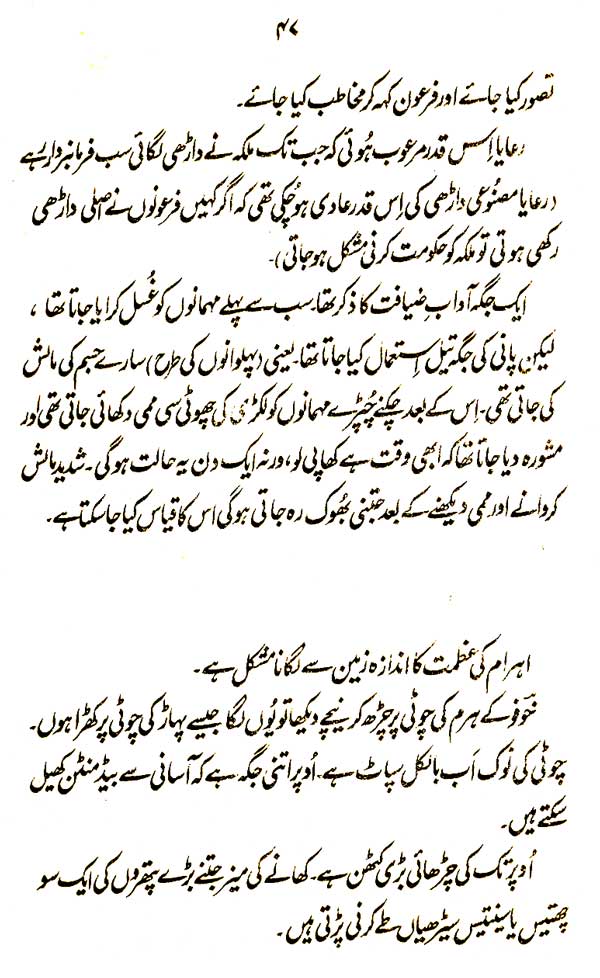 ۴۷
تصور کیا جائے اور فرعون کہہ کر مخاطب کیا جائے۔
رعایا اِسس قدر مرعوب ہُوئی کہ جب تک ملکہ نے داڑھی لگائی سب فرمانبردار رہے
(رعایا مصنُوعی داڑھی کی اِس قدر عادی ہو چُکی تھی کہ اگر کہیں فرعونوں نے اصلی داڑھی
رکھی ہوتی تو ملکہ کو حکومت کرنی مشکل ہو جاتی)۔
ایک جگہ آدابِ ضیافت کا ذکر تھا۔ سب سے پہلے مہمانوں کو غُسل کرایا جاتا تھا ،
لیکن پانی کی جگہ تیل اِستعمال کیا جاتا تھا۔ یعنی (پہلوانوں کی طرح) سارے جسم کی مالش
کی جاتی تھی۔ اِس کے بعد چکنے چُپڑے مہمانوں کو لکڑی کی چھوٹی سی ممی دکھائی جاتی تھی اور
مشورہ دیا جاتا تھا کہ ابھی وقت ہے کھا پی لو، ورنہ ایک دن یہ حالت ہو گی۔ شدید مالش
کروانے اور ممی دیکھنے کے بعد جتنی بُھوک رہ جاتی ہو گی اس کا قیاس کیا جا سکتا ہے۔
اہرام کی عظمت کا اندازہ زمین سے لگانا مشکل ہے۔
خُوفو کے ہرم کی چوٹی پر چڑھ کر نیچے دیکھا تو یُوں لگا جیسے پہاڑ کی چوٹی پر کھڑا ہوں۔
چوٹی کی نوک اَب بالکل سپاٹ ہے۔ اُوپر اتنی جگہ ہے کہ آسانی سے بیڈمنٹن کھیل
سکتے ہیں۔
اُوپر تک کی چڑھائی بڑی کٹھن ہے۔ کھانے کی میز جتنے بڑے پتھروں کی ایک سو
چھتیس یا سینتیس سیڑھیاں طے کرنی پڑتی ہیں۔